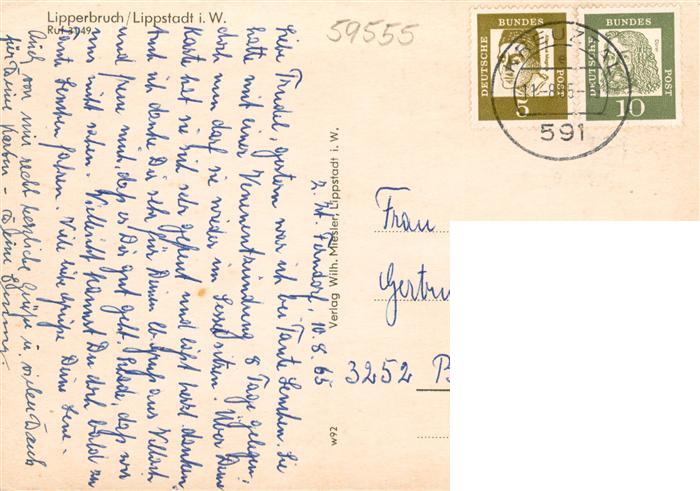 Lipperbruch/Lippstadt i. W.
Ruf 3049
59555
DEUTSCHE BUNDES POST
5
DEUTSCHE BUNDES POST
10
KREUZTAL
591
Verlag Wilh. Miesler, Lippstadt i. W.
W92
z. Zt. Ferndorf, 10.8.65
Liebe Trudel, gestern war ich bei Tante Lenchen. Sie
hatte mit einer Venenentzündung 8 Tage gelegen,
doch nun darf sie wieder im Sessel sitzen. Über Deine
Karte hat sie sich sehr gefreut und läßt herzl. danken.
Auch ich danke Dir sehr für Deinen lb. Gruß aus
und freue mich, daß es Dir gut geht. Schade, daß wir
uns nicht sahen. Vielleicht kannst Du doch bald zu
Tante Lenchen fahren. Viele liebe Grüße Deine Lene -
Auch von mir recht herzliche Grüße u. vielen Dank
für Deine Karten - Deine
Frau
Gertru
3252 B